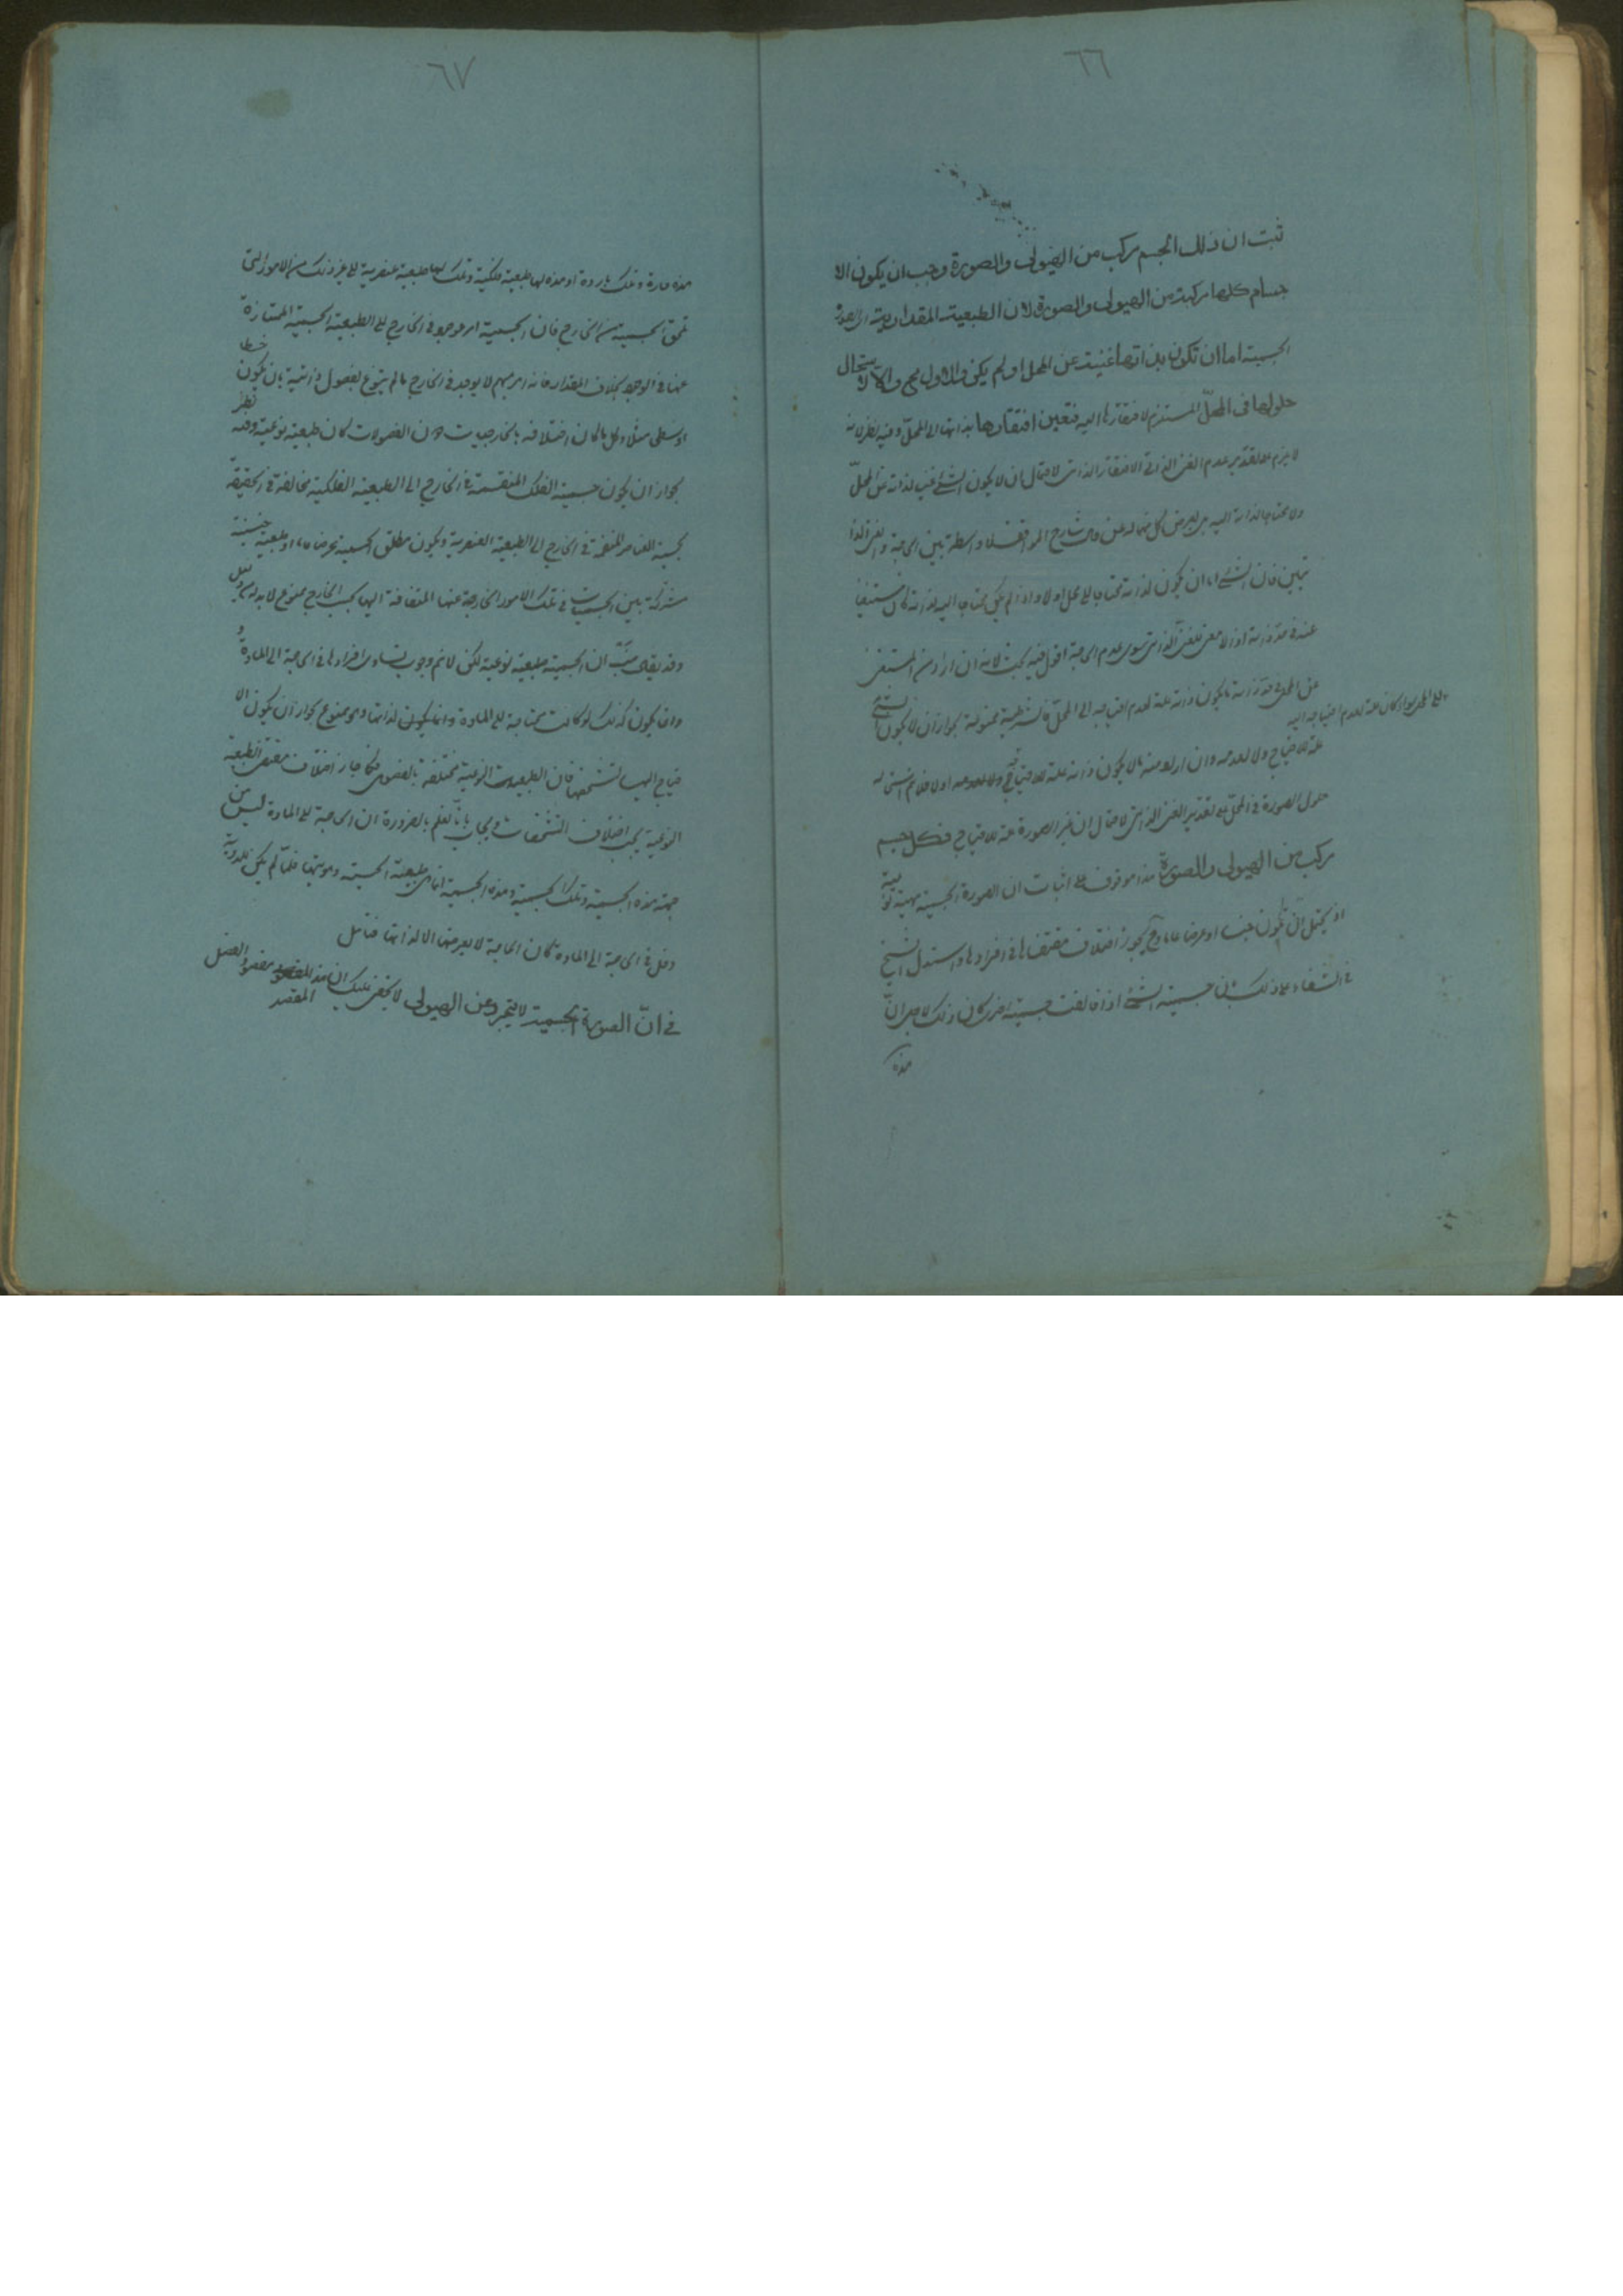 ٦٦
ثبت ان ذلك الجسم مركب من الهيولى والصورة وجب ان يكون الا
جسام كلها مركبة من الهيولى والصورة لان الطبيعة المقدارية اى الصورة
الجسمية اما ان تكون بذاتها غنية عن المحل او لم يكن والاول مح والا لاستحال
حلولها فى المحلّ المستلزم لافتقارها اليه فتعين افتقارها بذاتها الى المحلّ وفيه نظر لانه
لا يلزم على تقدير عدم الغنى الذاتى الافتقار الذاتى لاحتمال ان لا يكون الشئ غنيا لذاته عن المحلّ
ولا محتاجا لذاته اليه بل يعرض كل منهما له عن شارح المواقف لا واسطة بين الحاجة والغنى الذا
تيين فان الشئ اما ان يكون لذاته محتاجا الى محل او لا واذا لم يكن محتاجا اليه لذاته كان مستغنيا
عنه فى حدّ ذاته اذ لا معنى للغنى الذاتى سوى عدم الحاجة اقول فيه بحث لانه ان اراد من المستغنى
عن المحل فى حدّ ذاته ما يكون ذاته علة لعدم احتياجه الى المحلّ فالشرطية ممنوعة لجواز ان لا يكون الشئ
علة للاحتياج ولا لعدمه وان اراد منه ما لا يكون ذاته علة للاحتياج سواء كان علة لعدم احتياجه اليه او لا فلا نم استحالة
حلول الصورة فى المحلّ على تقدير الغنى الذاتى لاحتمال ان غير الصورة علة للاحتياج فكل جسم
مركب من الهيولى والصورة هذا موقوف على اثبات ان الصورة الجسمية مهية نوعية
اذ يحتمل ان تكون جنسا او عرضا عاما وح يجوز اختلاف مقتضاها فى افرادها واستدل الشيخ
فى الشفاء على ذلك بان جسمية الشئ اذا خالفت جسمية اخرى كان ذلك لاجل انّ
هذه
٦٧
هذه حارة وتلك باردة او هذه لها طبيعة فلكية وتلك لها طبيعة عنصرية الى غير ذلك من الامور التى
تلحق الجسمية من الخارج فان الجسمية امر موجود فى الخارج الى الطبيعة الجسمية الممتازة
عنها فى الوجود بخلاف المقدار فانه امر مبهم لا يوجد فى الخارج ما لم يتنوع بفصول ذاتية بان يكون خطا
او سطحا مثلا وكل ما كان اختلافه بالخارجيات دون الفصولات كان طبيعة نوعية وفيه نظر
لجواز ان يكون جسمية الفلك المنضمة فى الخارج الى الطبيعة الفلكية مخالفة فى الحقيقة
لجسمية العناصر المنضمة فى الخارج الى الطبيعة العنصرية ويكون مطلق الجسمية عرضا عاما او طبيعة جنسية
مشتركة بين الجسميات فى تلك الامور الخارجة عنها المنضافة اليها بحسب الخارج ممنوع لا بد له من دليل
وقد يقال ان الجسمية طبيعة نوعية لكن لا نم وجوب تساوى افرادها فى الحاجة الى المادة
وانما يكون كذلك لو كانت محتاجة الى المادة وانما يكون لذاتها وهو ممنوع لجواز ان يكون الا
حتياج اليها لتشخصها فان الطبيعة النوعية مختلفة بالفصول فكما جاز اختلاف مقتضى الطبيعة
النوعية بحسب اختلاف التشخصات ويجاب بانّا نعلم بالضرورة ان الحاجة الى المادة ليس من
جهة هذه الجسمية وتلك الجسمية وهذه الجسمية انما هى طبيعة الجسمية وهويتها فلمّا لم يكن للهوية
دخل فى الحاجة الى المادة كان الحاجة لا يعرضها الا لذاتها فتأمل
فى انّ الصورة الجسمية لا تتجرد عن الهيولى لا يخفى عليك ان هذا مقصود الفصل
المقصد